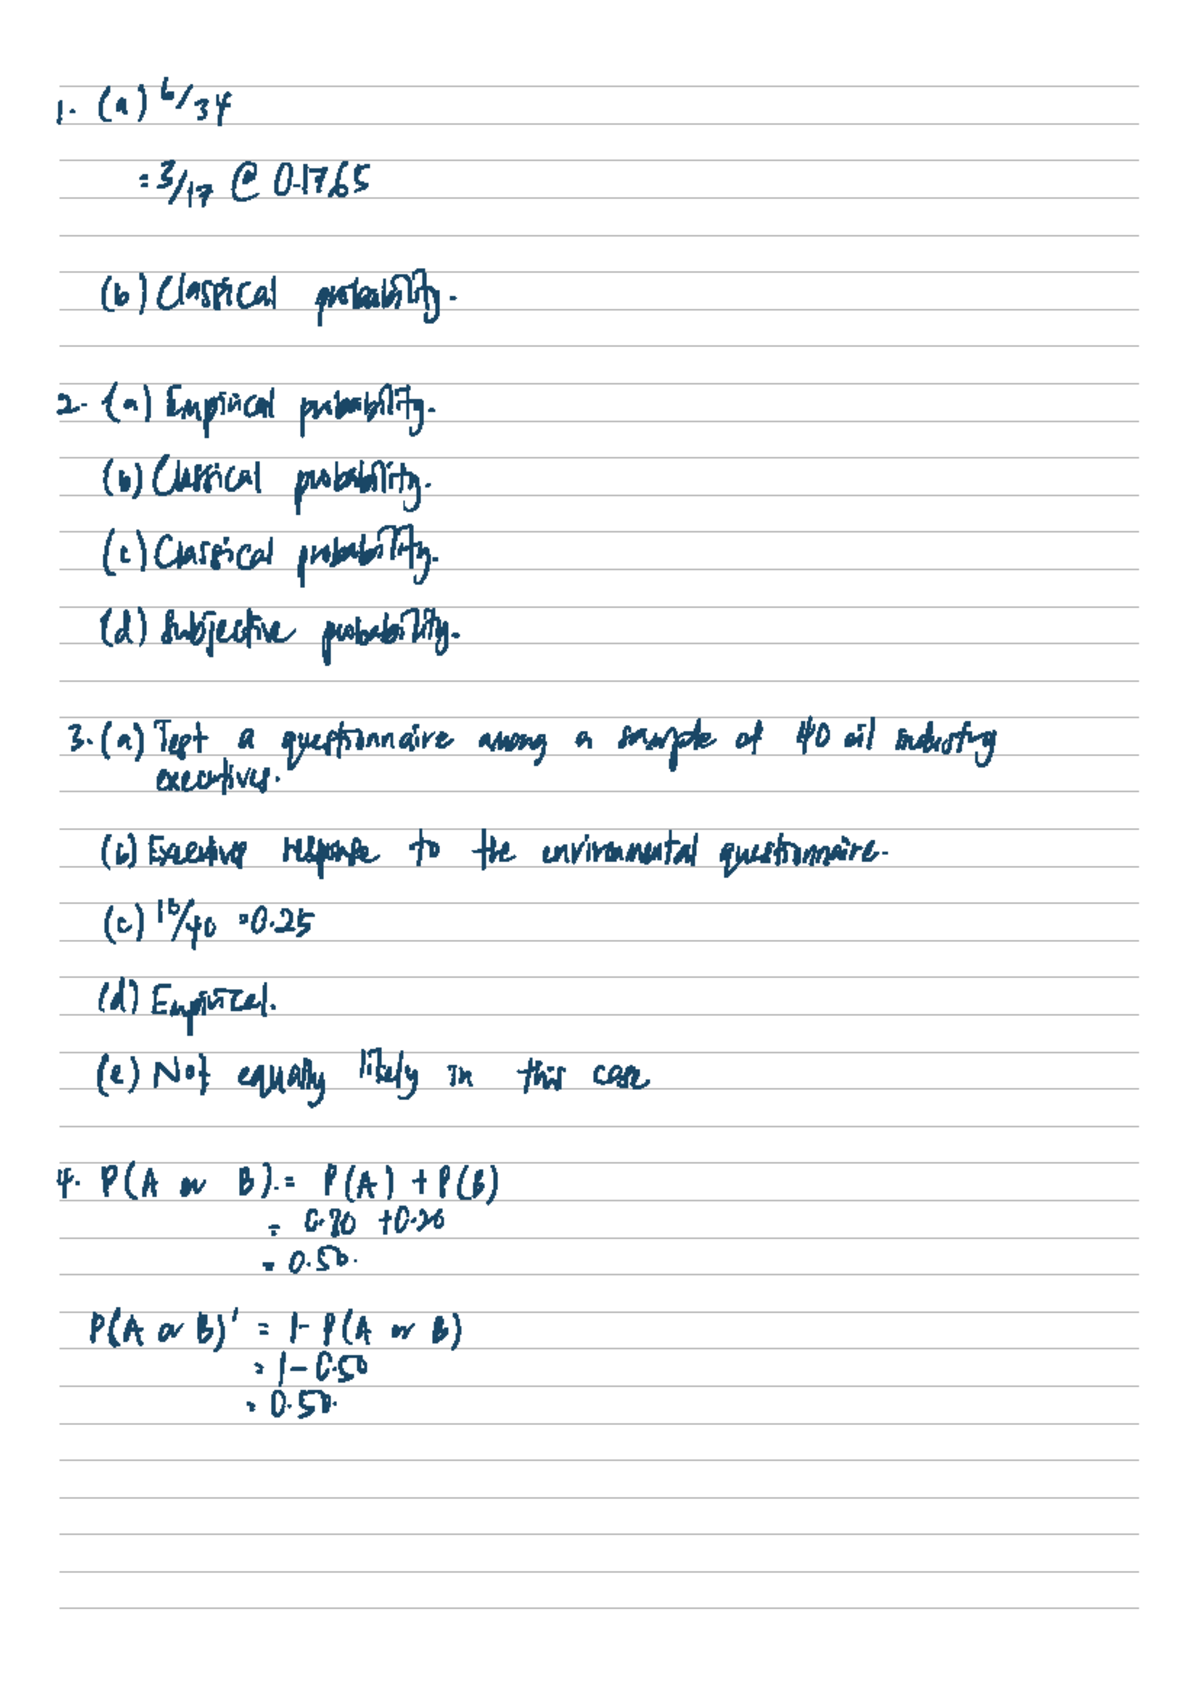 1. (a) 6/34
= 3/17 @ 0.1765
(b) Classical probability.
2. (a) Empirical probability.
(b) Classical probability.
(c) Classical probability.
(d) Subjective probability.
3. (a) Test a questionnaire among a sample of 40 oil industry
executives.
(b) Executive response to the environmental questionnaire.
(c) 10/40 = 0.25
(d) Empirical.
(e) Not equally likely in this case
4. P(A or B). = P(A) + P(B)
= 0.30 + 0.20
= 0.50.
P(A or B)' = 1 - P(A or B)
= 1 - 0.50
= 0.50.